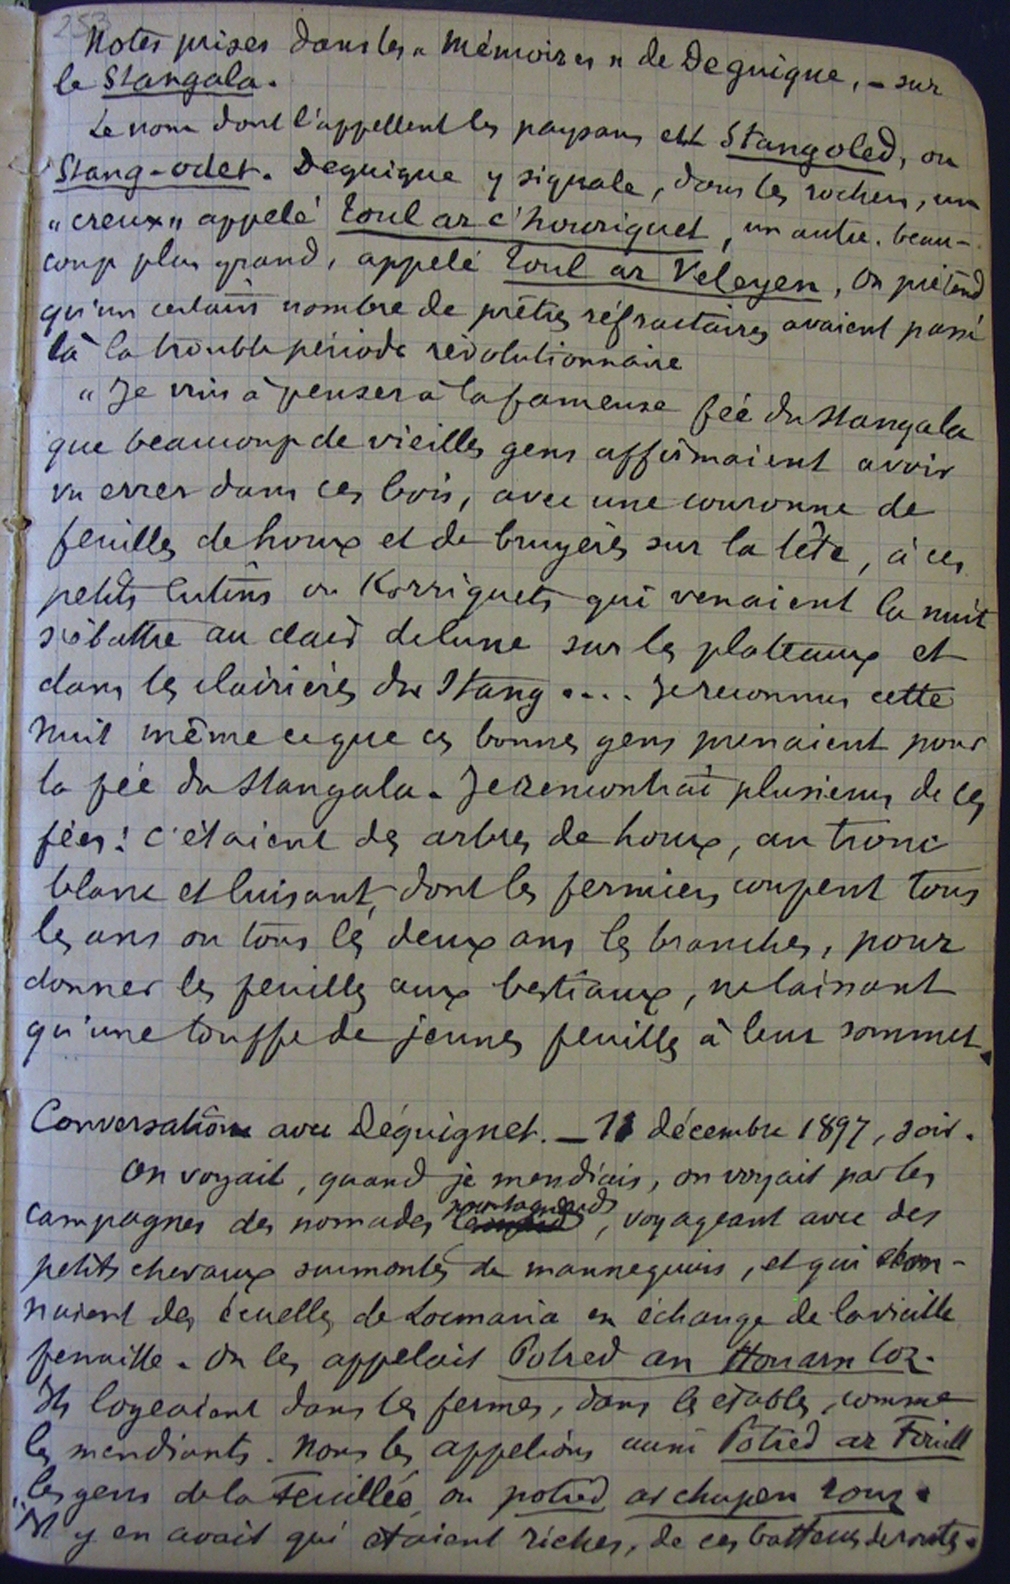 253
Notes prises dans les « Mémoires » de Deguigne, – sur
le Stangala.
Le nom dont l'appellent les paysans est Stangoled, ou
Stang-odet. Deguigne y signale, dans les rochers, un
"creux" appelé toul ar c'houriquet, un autre, beau-
coup plus grand, appelé Toul ar Veleyen, on prétend
qu'un certains nombre de prêtres réfractaires avaient passé
là la trouble période révolutionnaire
"Je vins à penser à la fameuse fée du Stangala
que beaucoup de vieilles gens affirmaient avoir
vu errer dans ces bois, avec une couronne de
feuilles de houx et de bruyères sur la tête, à ces
petits lutins ou Korriquets qui venaient la nuit
s'ébattre au clair de lune sur les plateaux et
dans les clairières du Stang .... Je reconnus cette
nuit même ce que ces bonnes gens prenaient pour
la fée du Stangala. Je rencontrai plusieurs de ces
fées : c'étaient des arbres de houx, au tronc
blanc et luisant, dont les fermiers coupent tous
les ans ou tous les deux ans les branches, pour
donner les feuilles aux bestiaux, ne laissant
qu'une touffe de jeunes feuilles à leur sommet.
Conversation avec Déguignet. – 11 décembre 1897, soir.
On voyait, quand je mendiais, on voyait par les
campagnes des nomades montagnards, voyageant avec des
petits chevaux surmontés de mannequins, et qui don-
naient des écuelles de Locmaria en échange de la vieille
ferraille. On les appelait Potred an Houarn coz.
Ils logeaient dans les fermes, dans les étables, comme
les mendiants. Nous les appelions aussi Potred ar Fouill
les gens de la Feuillée, ou potred ar chupen rouz.
"Il y en avait qui étaient riches, de ces batteurs de routes.